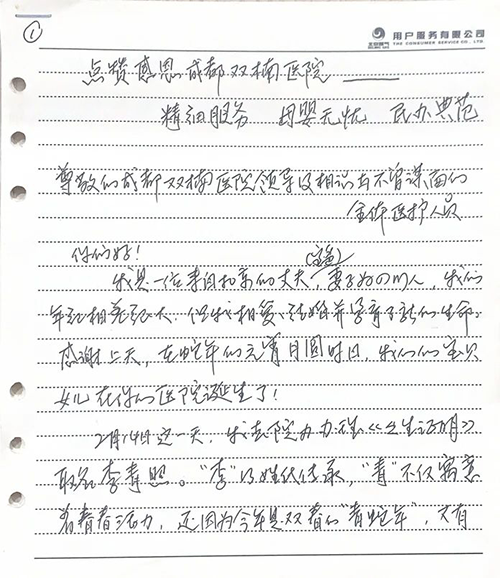 ①
用户服务有限公司
THE CONSUMER SERVICE CO., LTD
点赞感恩成都双楠医院——
精细服务 母婴无忧 民办典范
尊敬的成都双楠医院领导及相识与不曾谋面的
全体医护人员
你们好!
我是一位来自的丈夫,妻子为四川人,我们
年纪相差较大,但我们相爱、结婚并孕育了新的生命。
感谢上天,在蛇年的元宵月圆时日,我们的宝贝
女儿在你们医院诞生了!
2月14日这一天,我去院办办理《出生证明》
取名李青照。"李"以姓代传承,"青"不仅寓意
着青春活力,还因为今年是双春的"青蛇年",又有